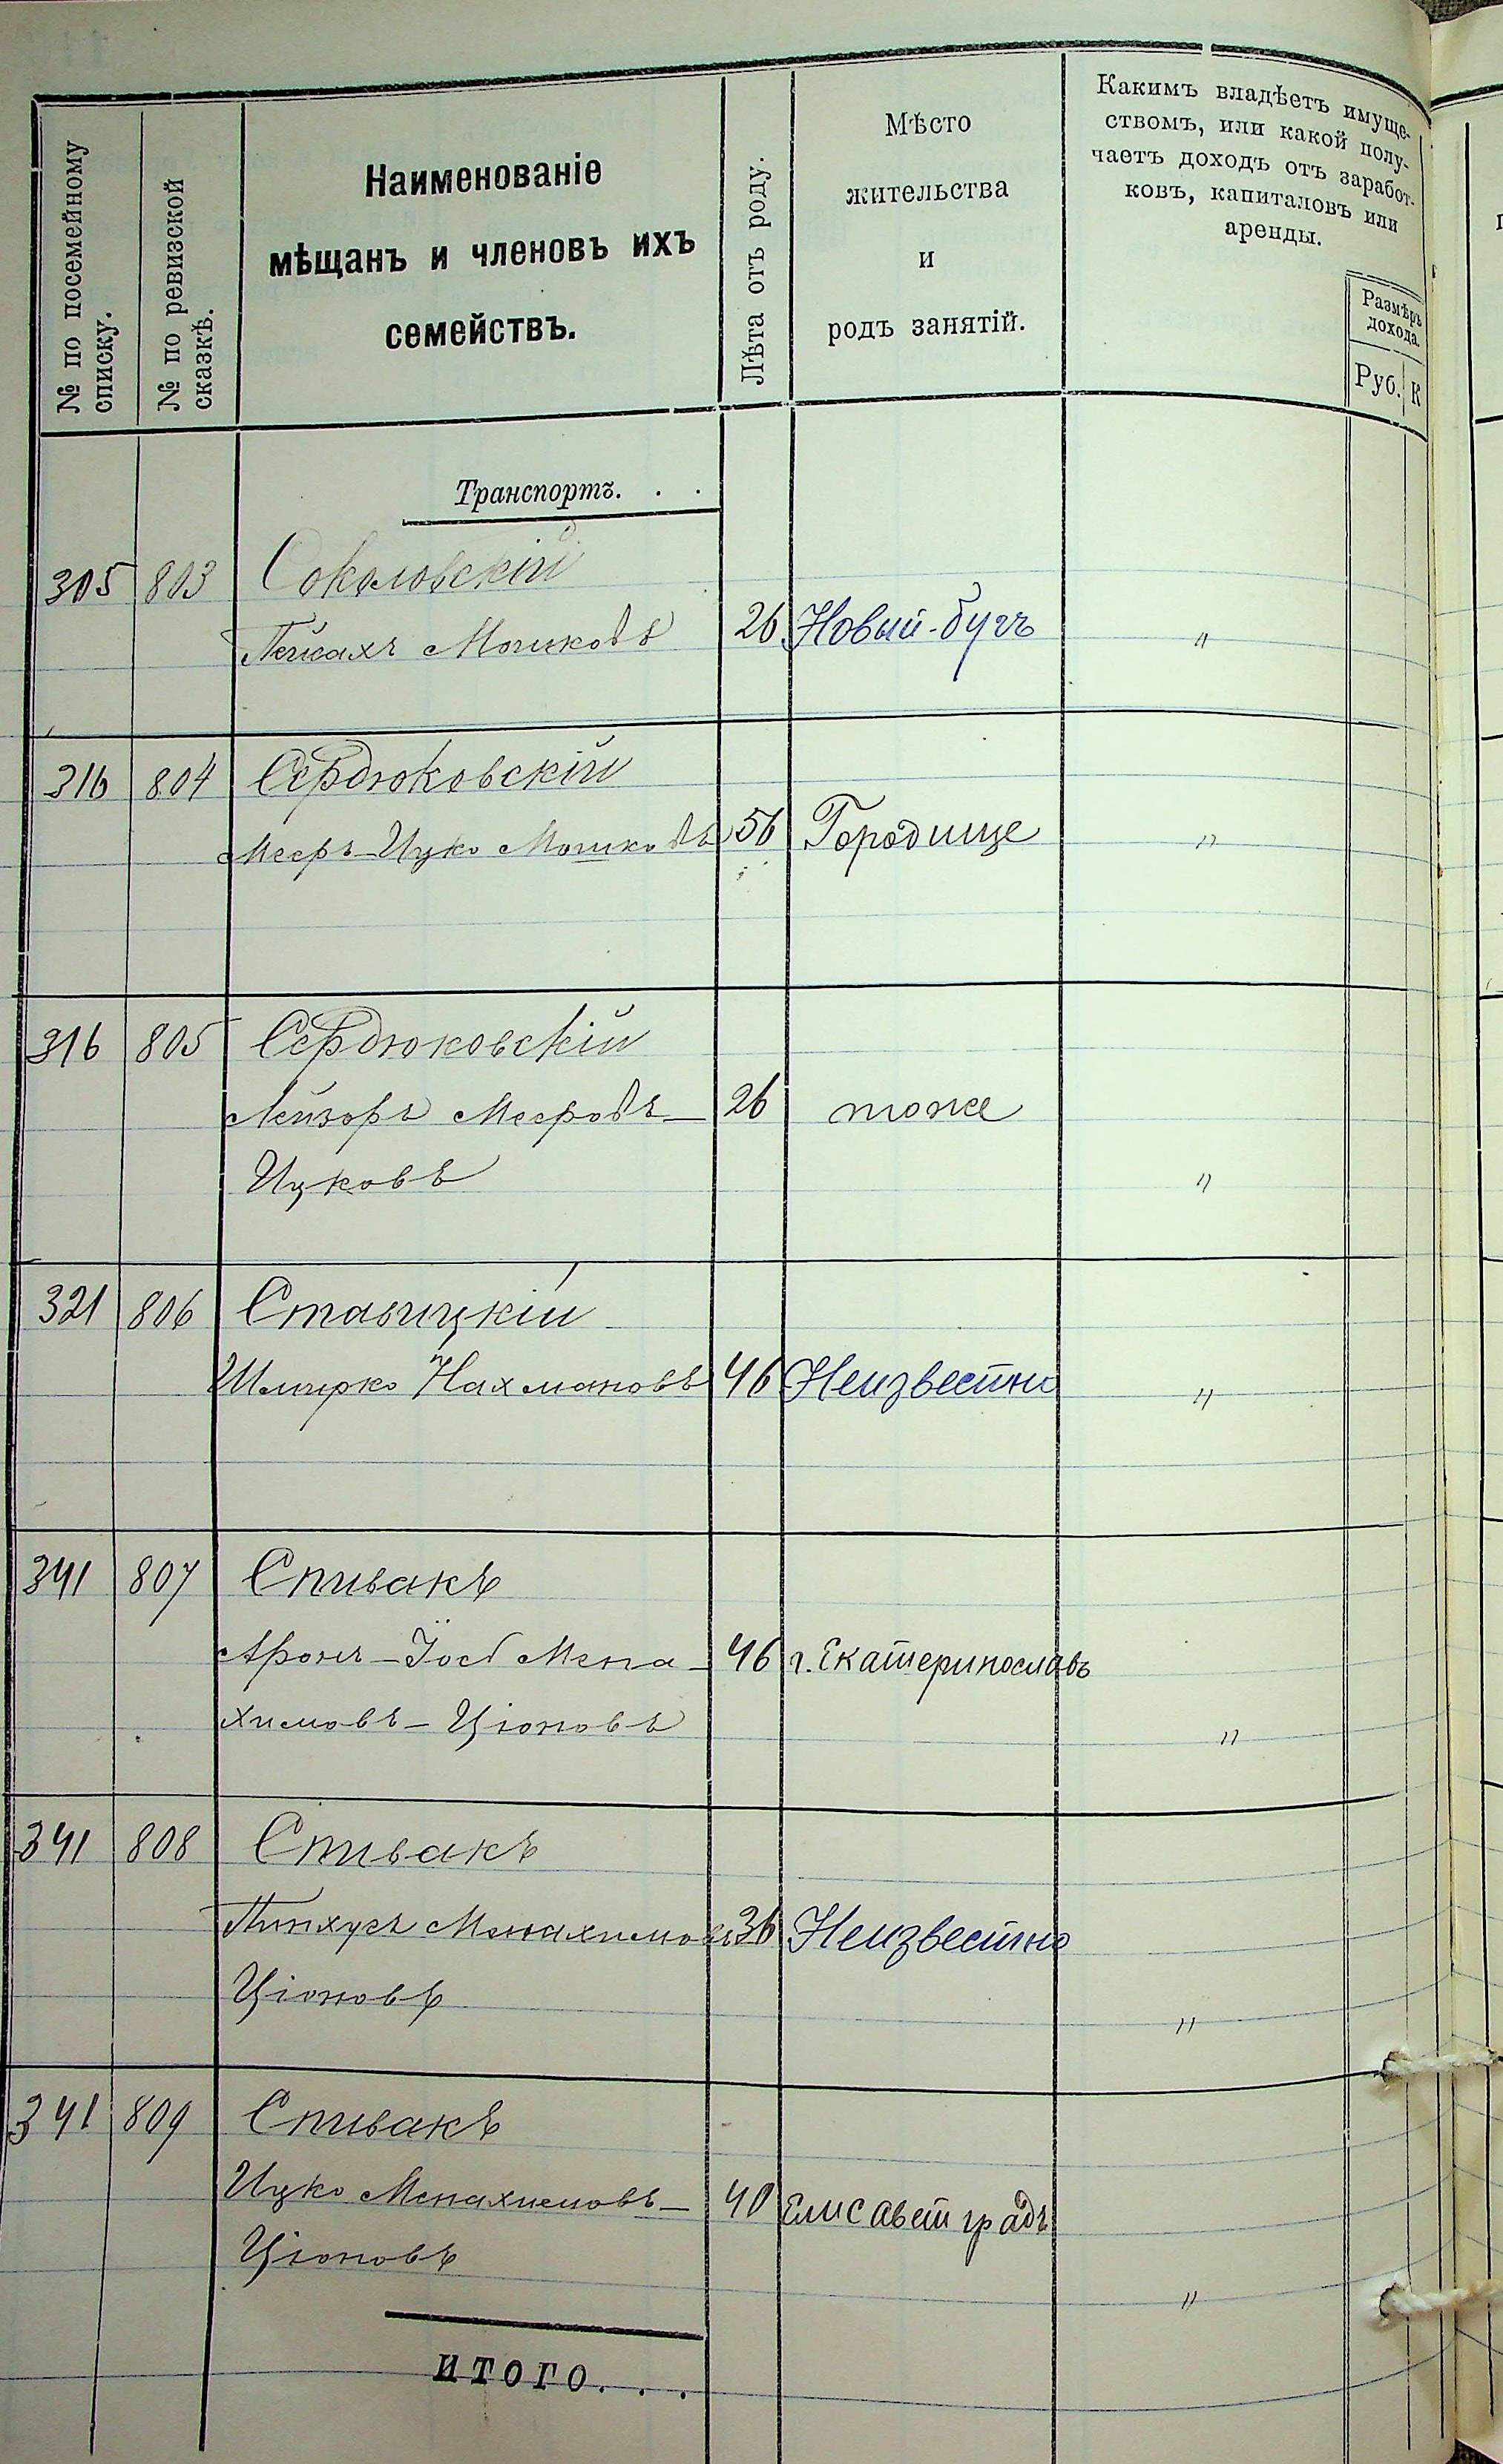 № по посемейному
списку.
№ по ревизской
сказкѣ.
Наименованіе
мѣщанъ и членовъ ихъ
семействъ.
Лѣта отъ роду.
Мѣсто
жительства
и
родъ занятій.
Какимъ владѣетъ имуще-
ствомъ, или какой полу-
чаетъ доходъ отъ заработ-
ковъ, капиталовъ или
аренды.
Размѣръ
дохода.
Руб. К
Транспортъ. . .
305 803 Соколовскій
Пейсахъ Мошковъ 26 Новый-бугъ "
316 804 Сердюковскій
Мееръ-Ицко Мошковъ 56 Городище "
316 805 Сердюковскій
Лейзоръ Мееровъ- 26 тоже
Ицковъ "
321 806 Ставицкій
Шмерко Нахмановъ 46 Неизвестно "
341 807 Спивакъ
Аронъ-Іос Мена- 46 г. Екатеринославъ
химовъ-Ціоновъ "
341 808 Спивакъ
Пинхусъ Менахимовъ 36 Неизвестно
Ціоновъ "
341 809 Спивакъ
Ицко Менахимовъ- 40 Елисаветградъ
Ціоновъ "
ИТОГО. . .